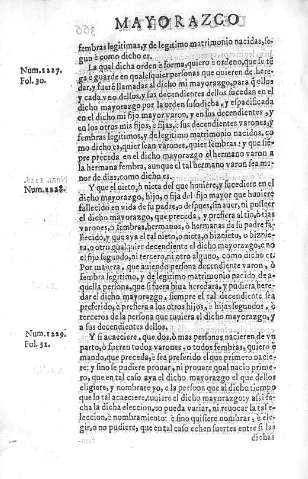 MAYORAZGO
sembras legitimas, y de legitimo matrimonio nacidas, so-
gun è como dicho es.
Num. 1227.
Fol. 30.
La qual dicha orden è forma, quiero è ordeno, que se tẽ
ga è guarde en qualesquier personas que ouieren de here-
dar, y fuerẽ llamadas al dicho mi mayorazgo, para q ellos
y cada vno dellos, y sus decendientes sucedan en el
dicho mayorazgo por la orden susodicha, y especificada
en el dicho mi fijo mayor varon, y en sus decendientes, y
en los otros mis fijos, è fijas, è sus decendientes varones, y
fembras legitimos, y de legitimo matrimonio nacidos, co
mo dicho es, quier sean varones, quier fembras: y que siẽ-
pre preceda en el dicho mayorazgo el hermano varon a
la hermana fembra, aunque el tal hermano varon sea me-
nor de dias, como dicho es.
Num. 1228.
Y que el nieto, ò nieta del que houiere, y sucediere en el
dicho mayorazgo, fijo, o fija del fijo mayor que huuiere
fallecido en vida de su padre, o despues, sin auer, ni posseer
el dicho mayorazgo, que preceda, y prefiera al tio, ò tias
varones, ò fembras, hermanos, ò hermanas de su padre fa-
llecido, y que aya el tal nieto, o nieta, o bisnieto, o biznie-
ta, o otro qualquier decendiente el dicho mayorazgo, e no
el fijo segundo, ni tercero, ni otro alguno, como dicho es.
Por manera, que auiendo persona decendiente varon, ò
fembra legitima, y de legitimo matrimonio nacido de a-
quella persona, que si fuera biua heredara, y pudiera here-
dar el dicho mayorazgo, siempre el tal decendiente sea
preferido, è prefiera a los otros hijos, è hijas segundos, ò
terceros de la persona que tuuiera el dicho mayorazgo, y
a sus decendientes dellos.
Num. 1229.
Fol. 31.
Y si acaeciere, que dos, ò mas personas nacieren de vn
parto, ò fueren todos varones, o todos fembras, quiero è
mando, que preceda, è sea preferido el que primero nacie-
re; y sino se pudiere prouar, ni prouare qual nacio prime-
ro, que en tal caso aya el dicho mayorazgo el que dellos
eligiere, y nombrare yo, e la persona que al dicho tiempo
que lo tal acaeciere, tuuiere el dicho mayorazgo; y assi fa-
cha la dicha eleccion, no pueda variar, ni reuocar la tal e-
leccion, è nombramiento: è sino quisiere nombrar, è ele-
gir, o no pudiere, que en tal caso echen suertes entre si las
dichas